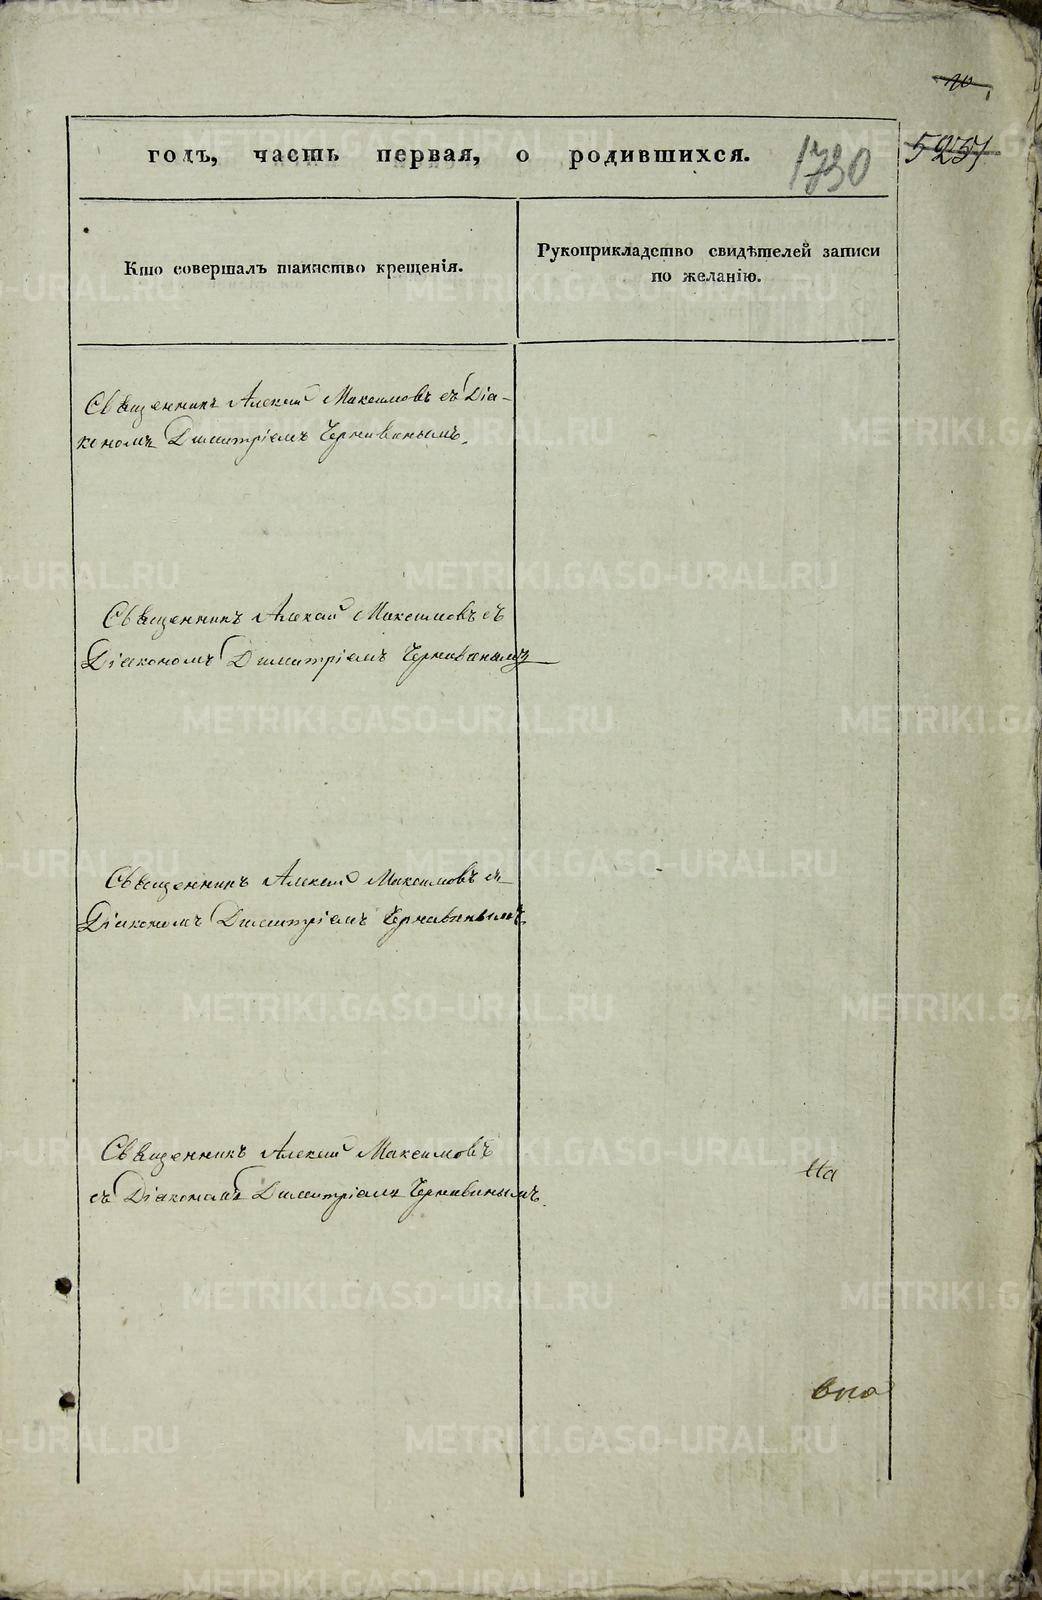 годъ, часть первая, о родившихся.
1730
Кто совершалъ таинство крещенія.
Рукоприкладство свидѣтелей записи
по желанію.
Священникъ Алексій Максимовъ съ Діа-
кономъ Димитріемъ Чернавинымъ.
Священникъ Алексій Максимовъ съ
Діакономъ Димитріемъ Чернавинымъ
Священникъ Алексій Максимовъ съ
Діакономъ Димитріемъ Чернавинымъ
Священникъ Алексій Максимовъ
съ Діакономъ Димитріемъ Чернавинымъ.
METRIKI.GASO-URAL.RU